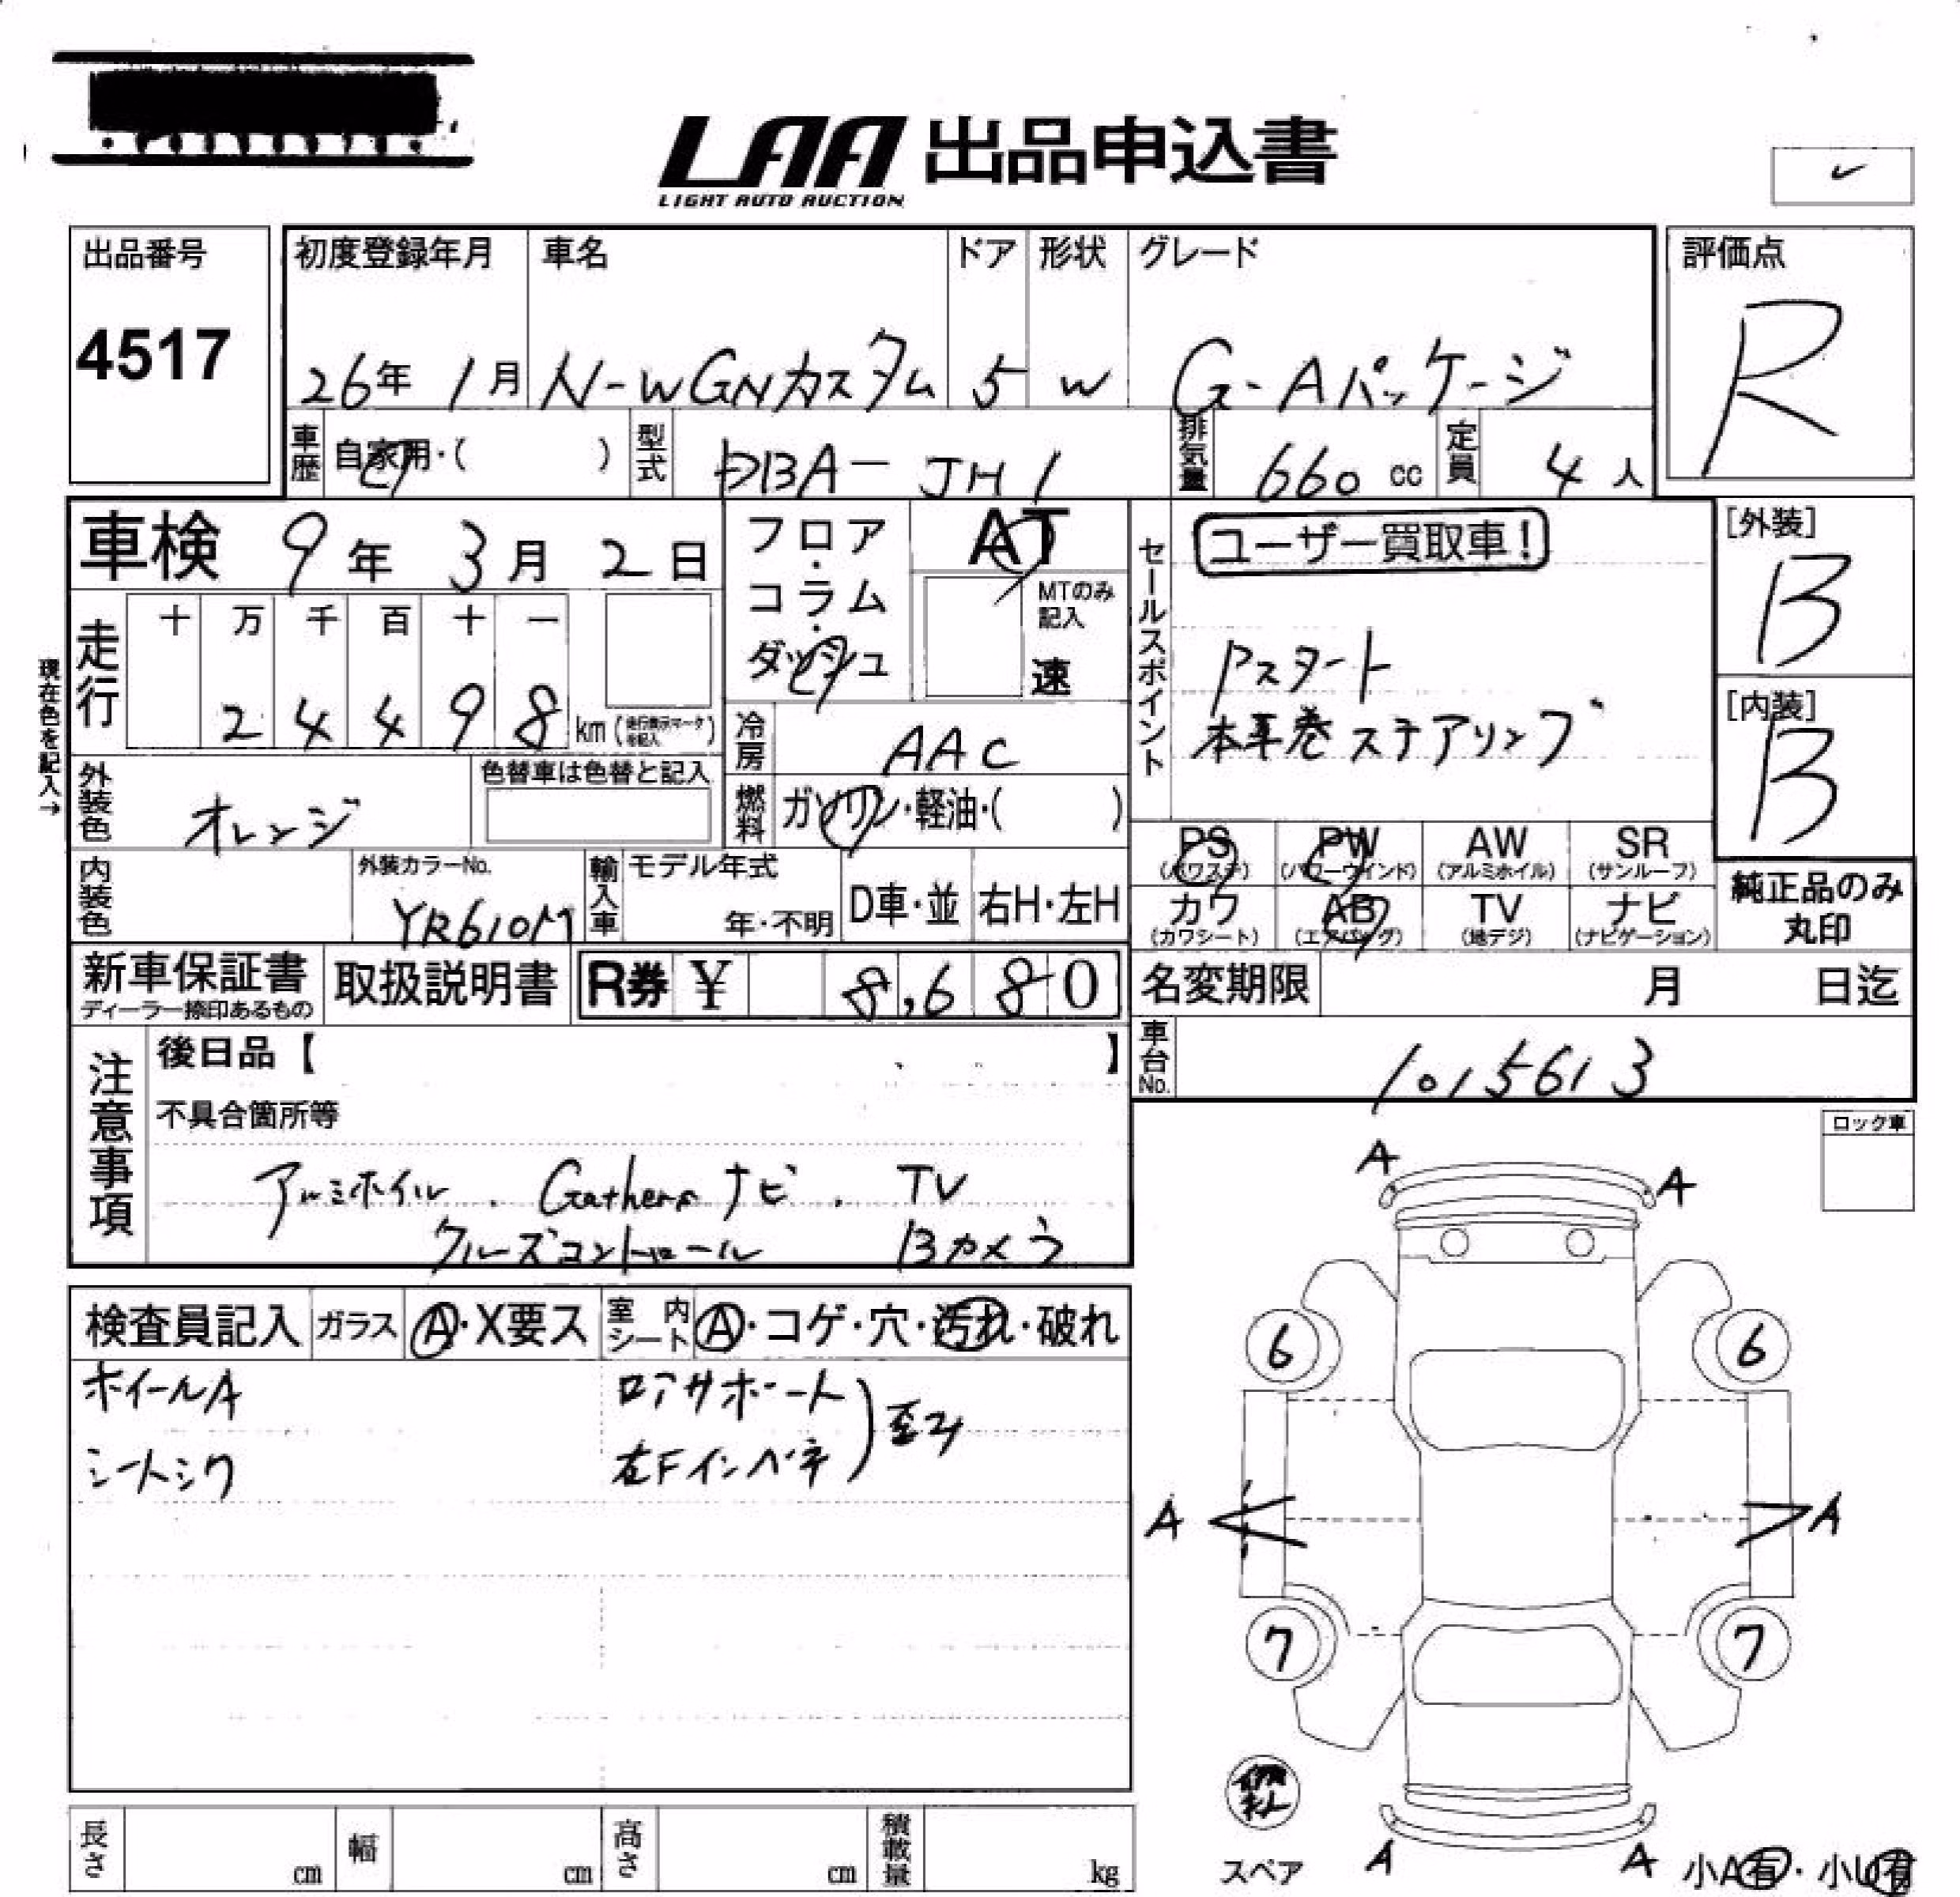 LAA 出品申込書
LIGHT AUTO AUCTION
出品番号
4517
初度登録年月
26年 1月
車名
N-WGNカスタム
ドア
5
形状
W
グレード
G-Aパッケージ
評価点
R
車歴
自家用・( )
型式
DBA-JH1
排気量
660 cc
定員
4人
車検 9年 3月 2日
フロア・コラム・ダッシュ
AT
MTのみ記入
速
セールスポイント
ユーザー買取車!
Pスタート
本革巻ステアリング
[外装]
B
[内装]
B
現在色を記入→
走行
十 万 千 百 十 一
2 4 4 9 8 km
冷房
AAC
外装色
オレンジ
色替車は色替と記入
燃料
ガソリン・軽油・( )
PS
PW
(パワーウインド)
AW
(アルミホイル)
SR
(サンルーフ)
カワ
(カワシート)
AB
(エアバッグ)
TV
(地デジ)
ナビ
(ナビゲーション)
純正品のみ
丸印
内装色
外装カラーNo.
YR610M
輸入車
モデル年式
年・不明
D車・並
右H・左H
新車保証書
ディーラー捺印あるもの
取扱説明書
R券 ¥ 8,680
名変期限 月 日迄
車台No.
1015613
注意事項
後日品【 】
不具合箇所等
アルミホイル . Gathersナビ . TV
クルーズコントロール Bカメラ
ロック車
検査員記入
ガラス
A・X要ス
室内シート
A・コゲ・穴・汚れ・破れ
ホイールA
シートシワ
ロアサポート
左Fインパネ
歪み
A
A
6
6
A
A
7
7
A
A
スペア
小A有・小U有
長さ cm
幅 cm
高さ cm
積載量 kg